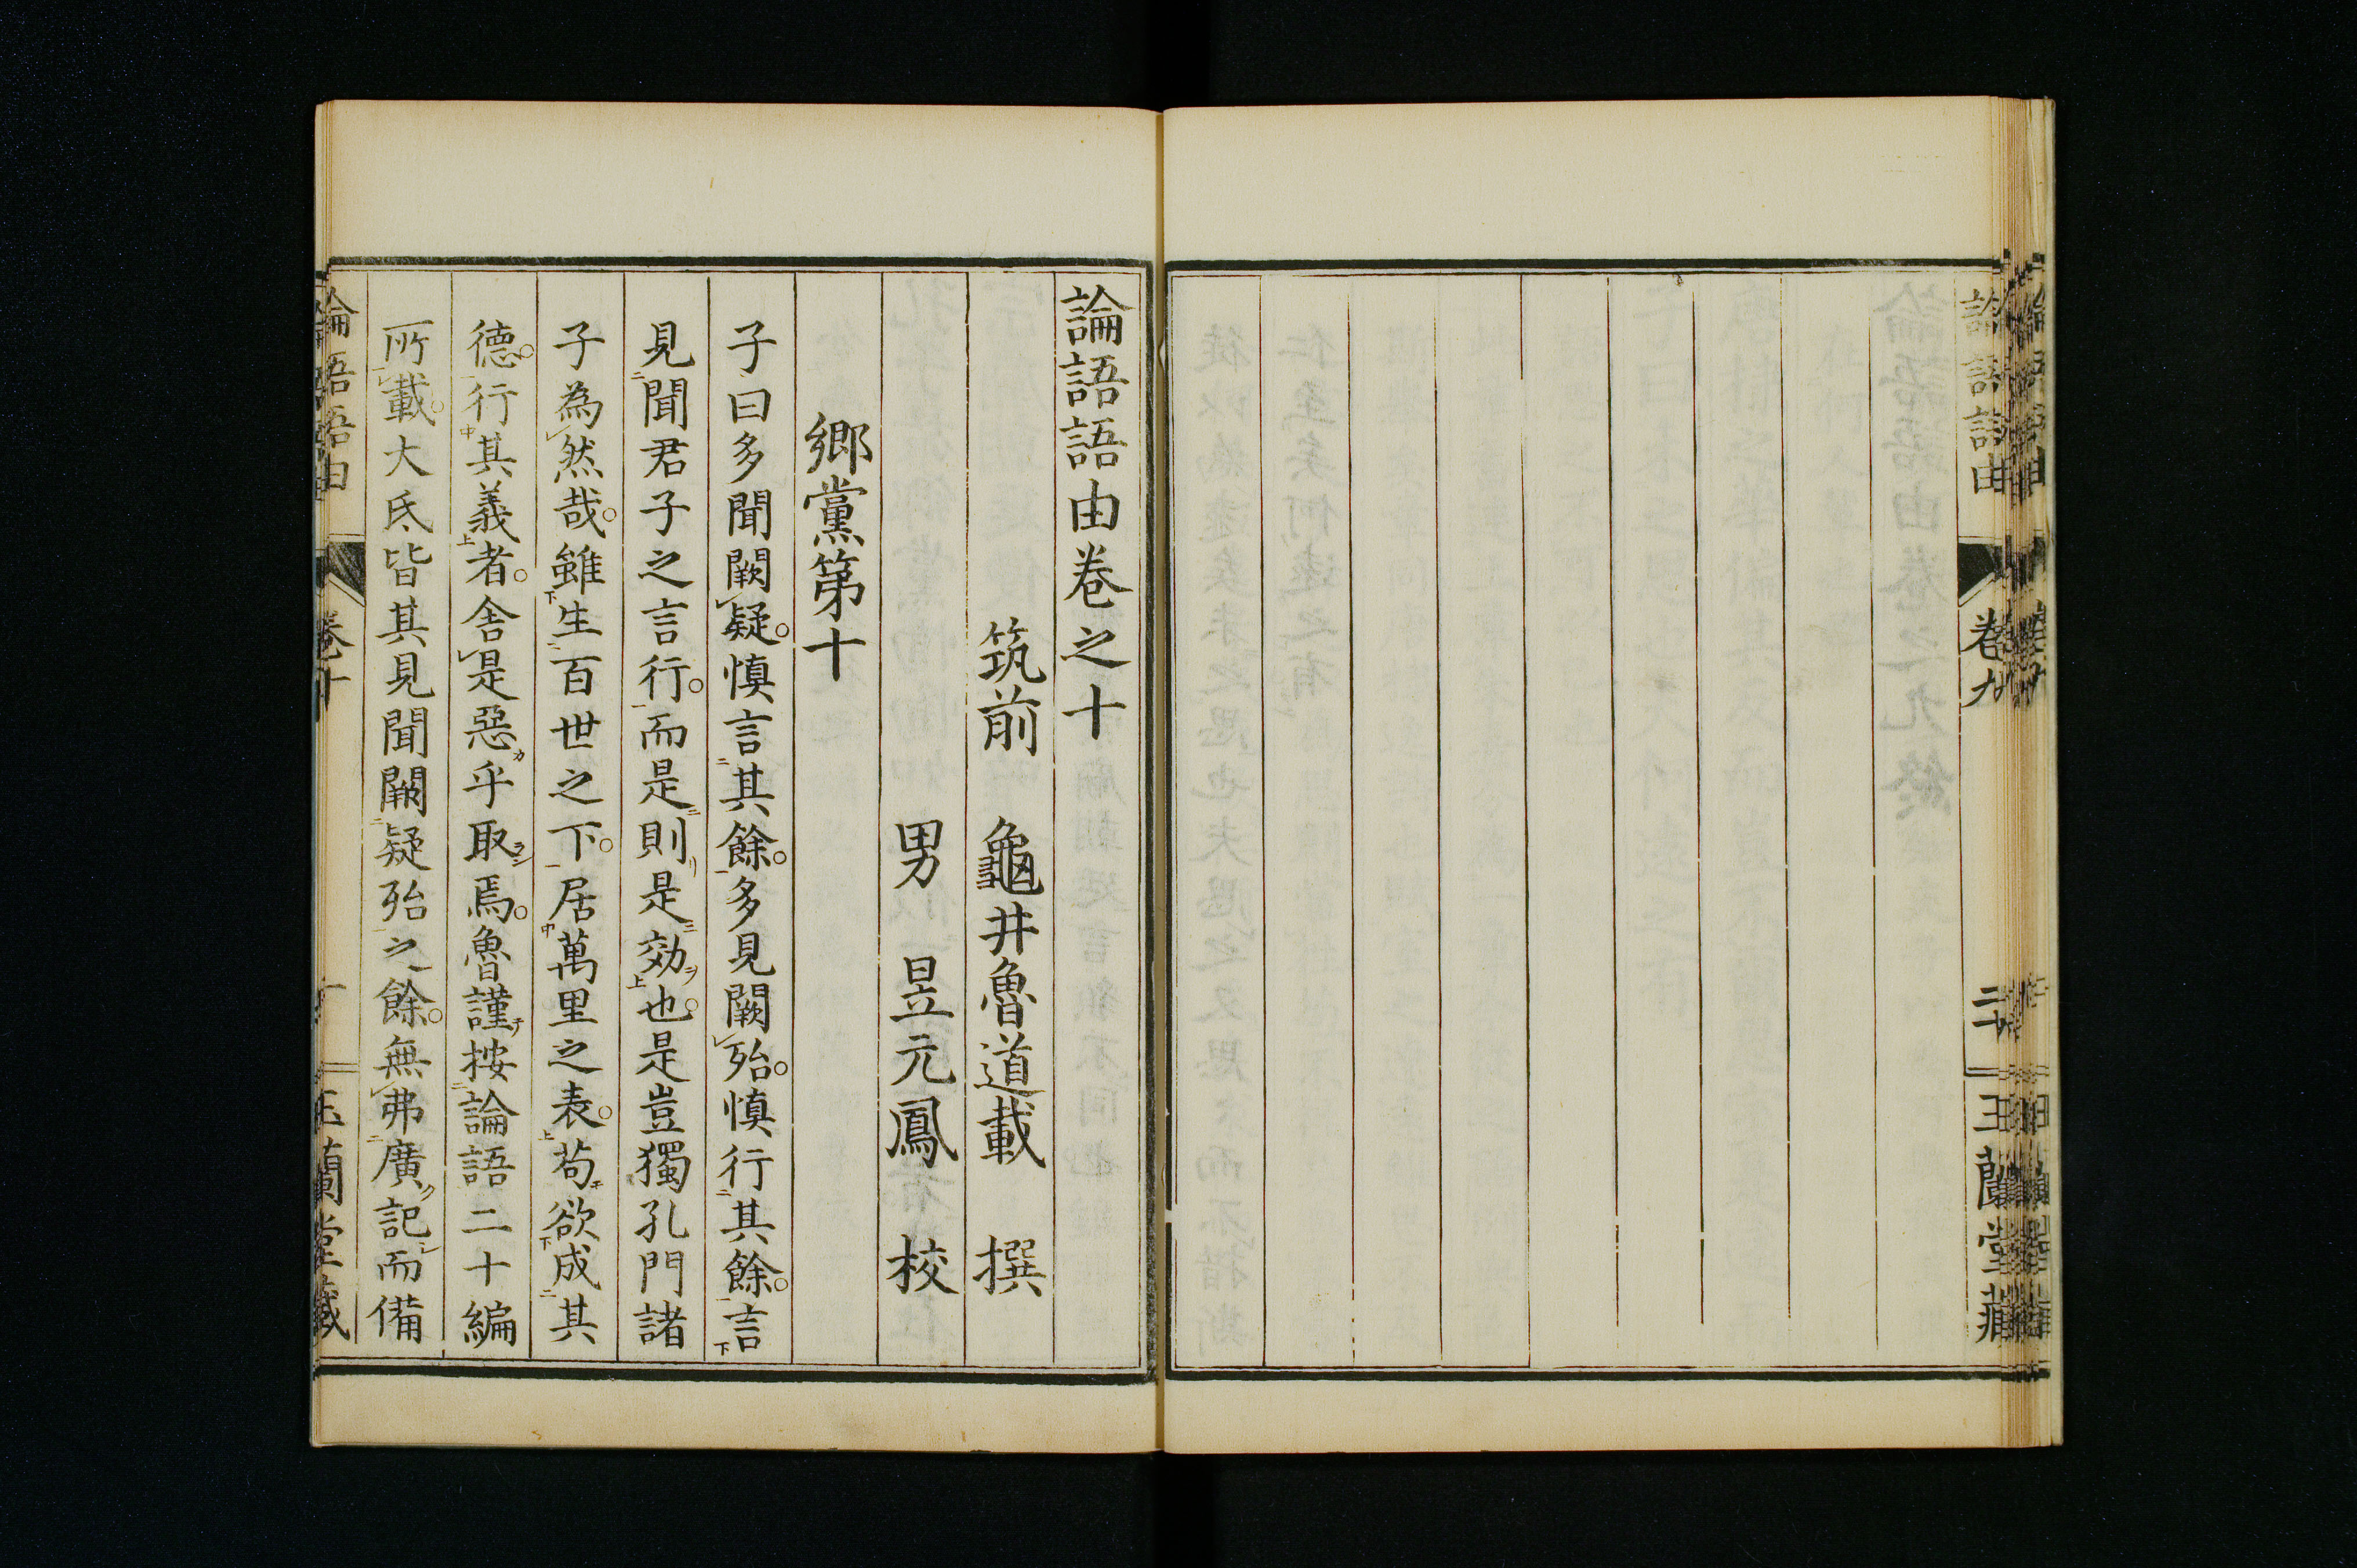 論語語由
卷九
二十
玉蘭堂藏
論語語由卷之十
筑前 龜井魯道載 撰
男 昱元鳳 校
鄉黨第十
子曰多聞闕疑慎言其餘多見闕殆慎行其餘言
見聞君子之言行而是則是效也是豈獨孔門諸
子為然哉雖生百世之下居萬里之表苟欲成其
德行其義者舍是惡乎取焉魯謹按論語二十編
所載大氐皆其見聞闕疑殆之餘無弗廣記而備
論語語由
卷十
玉蘭堂藏